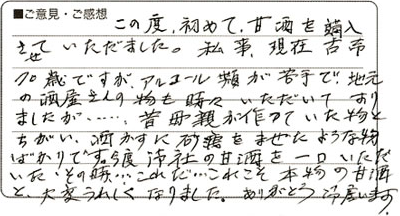 ■ご意見・ご感想
この度、初めて、甘酒を購入
させていただきました。私事、現在古希
70歳ですが、アルコール類が苦手で、地元
の酒屋さんの物も時々いただいており
ましたが……、昔母親が作っていた物と
ちがい、酒かすに砂糖をまぜたような物
ばかりです。今度御社の甘酒を一口いただ
いた、その時…これだ…これこそ本物の甘酒
と、大変うれしくなりました。ありがとうございます。